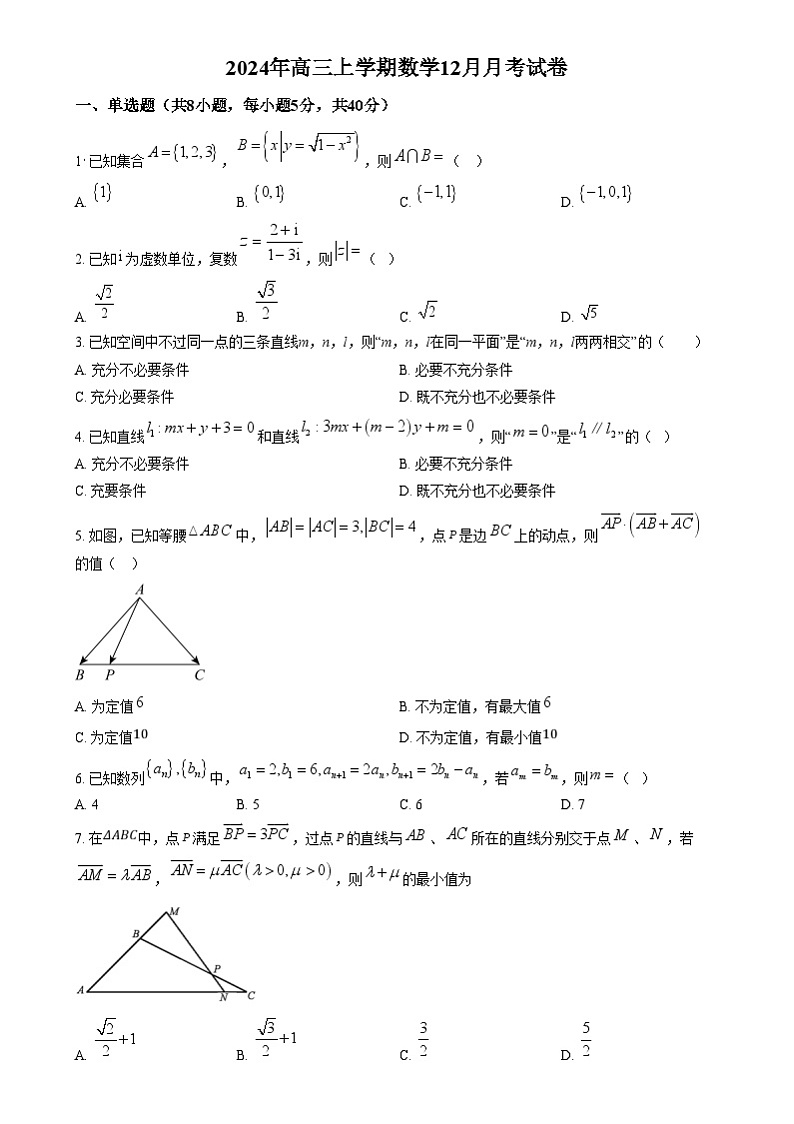 2024年高三上学期数学12月月考试卷
一、单选题（共8小题，每小题5分，共40分）
1. 已知集合 A={1,2,3}，B={x|y=√(1-x²)}，则 A∩B=（ ）
A. {1} B. {0,1} C. {-1,1} D. {-1,0,1}
2. 已知 i 为虚数单位，复数 z=(2+i)/(1-3i)，则|z|=（ ）
A. √2/2 B. √3/2 C. √2 D. √5
3. 已知空间中不过同一点的三条直线m，n，l，则“m，n，l在同一平面”是“m，n，l两两相交”的（ ）
A. 充分不必要条件 B. 必要不充分条件
C. 充分必要条件 D. 既不充分也不必要条件
4. 已知直线 l₁:mx+y+3=0 和直线 l₂:3mx+(m-2)y+m=0，则“m=0”是“l₁∥l₂”的（ ）
A. 充分不必要条件 B. 必要不充分条件
C. 充要条件 D. 既不充分也不必要条件
5. 如图，已知等腰△ABC 中，|AB|=|AC|=3,|BC|=4，点 P 是边 BC 上的动点，则 AP·(AB+AC)
的值（ ）
A
B P C
A. 为定值 6 B. 不为定值，有最大值 6
C. 为定值10 D. 不为定值，有最小值10
6. 已知数列{aₙ},{bₙ}中，a₁=2,b₁=6,aₙ₊₁=2aₙ,bₙ₊₁=2bₙ-aₙ，若 aₘ=bₘ，则 m=（ ）
A. 4 B. 5 C. 6 D. 7
7. 在ΔABC中，点 P 满足 BP=3PC，过点 P 的直线与 AB 、 AC 所在的直线分别交于点 M 、 N ，若
AM=λAB，AN=μAC(λ>0,μ>0)，则 λ+μ 的最小值为
M
B
P
A N C
A. √2/2+1 B. √3/2+1 C. 3/2 D. 5/2